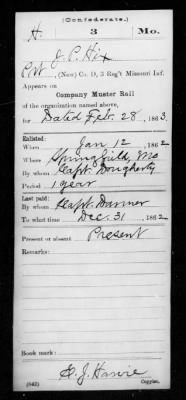 (Confederate.)
H. 3 Mo.
J. P. Hix
Pvt, (New) Co. D, 3 Reg't Missouri Inf.
Appears on
Company Muster Roll
of the organization named above,
for Dated Feb. 28, 1863.
Enlisted:
When Jan 12, 1862
Where Springfield, Mo
By whom Capt. Dougherty
Period 1 year
Last paid:
By whom Capt. Danner
To what time Dec. 31, 1862
Present or absent Present
Remarks:
Book mark:
(642) Copyist.